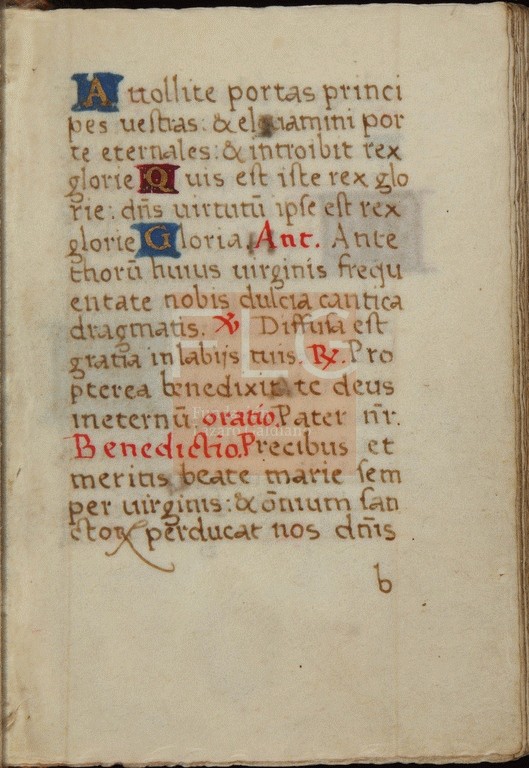 Attollite portas princi
pes uestras: & eleuamini por
te eternales: & introibit rex
glorie Quis est iste rex glo
rie: dn̄s uirtutū ipse est rex
glorie Gloria. Ant. Ante
thorū huius uirginis frequ
entate nobis dulcia cantica
dragmatis. ℣ Diffusa est
gratia in labijs tuis. ℞. Pro
pterea benedixit te deus
ineternū oratio. Pater nr̄.
Benedictio. Precibus et
meritis beate marie sem
per uirginis: & ōnium san
ctoꝝ perducat nos dn̄s
b
FLG
Lázaro Galdiano